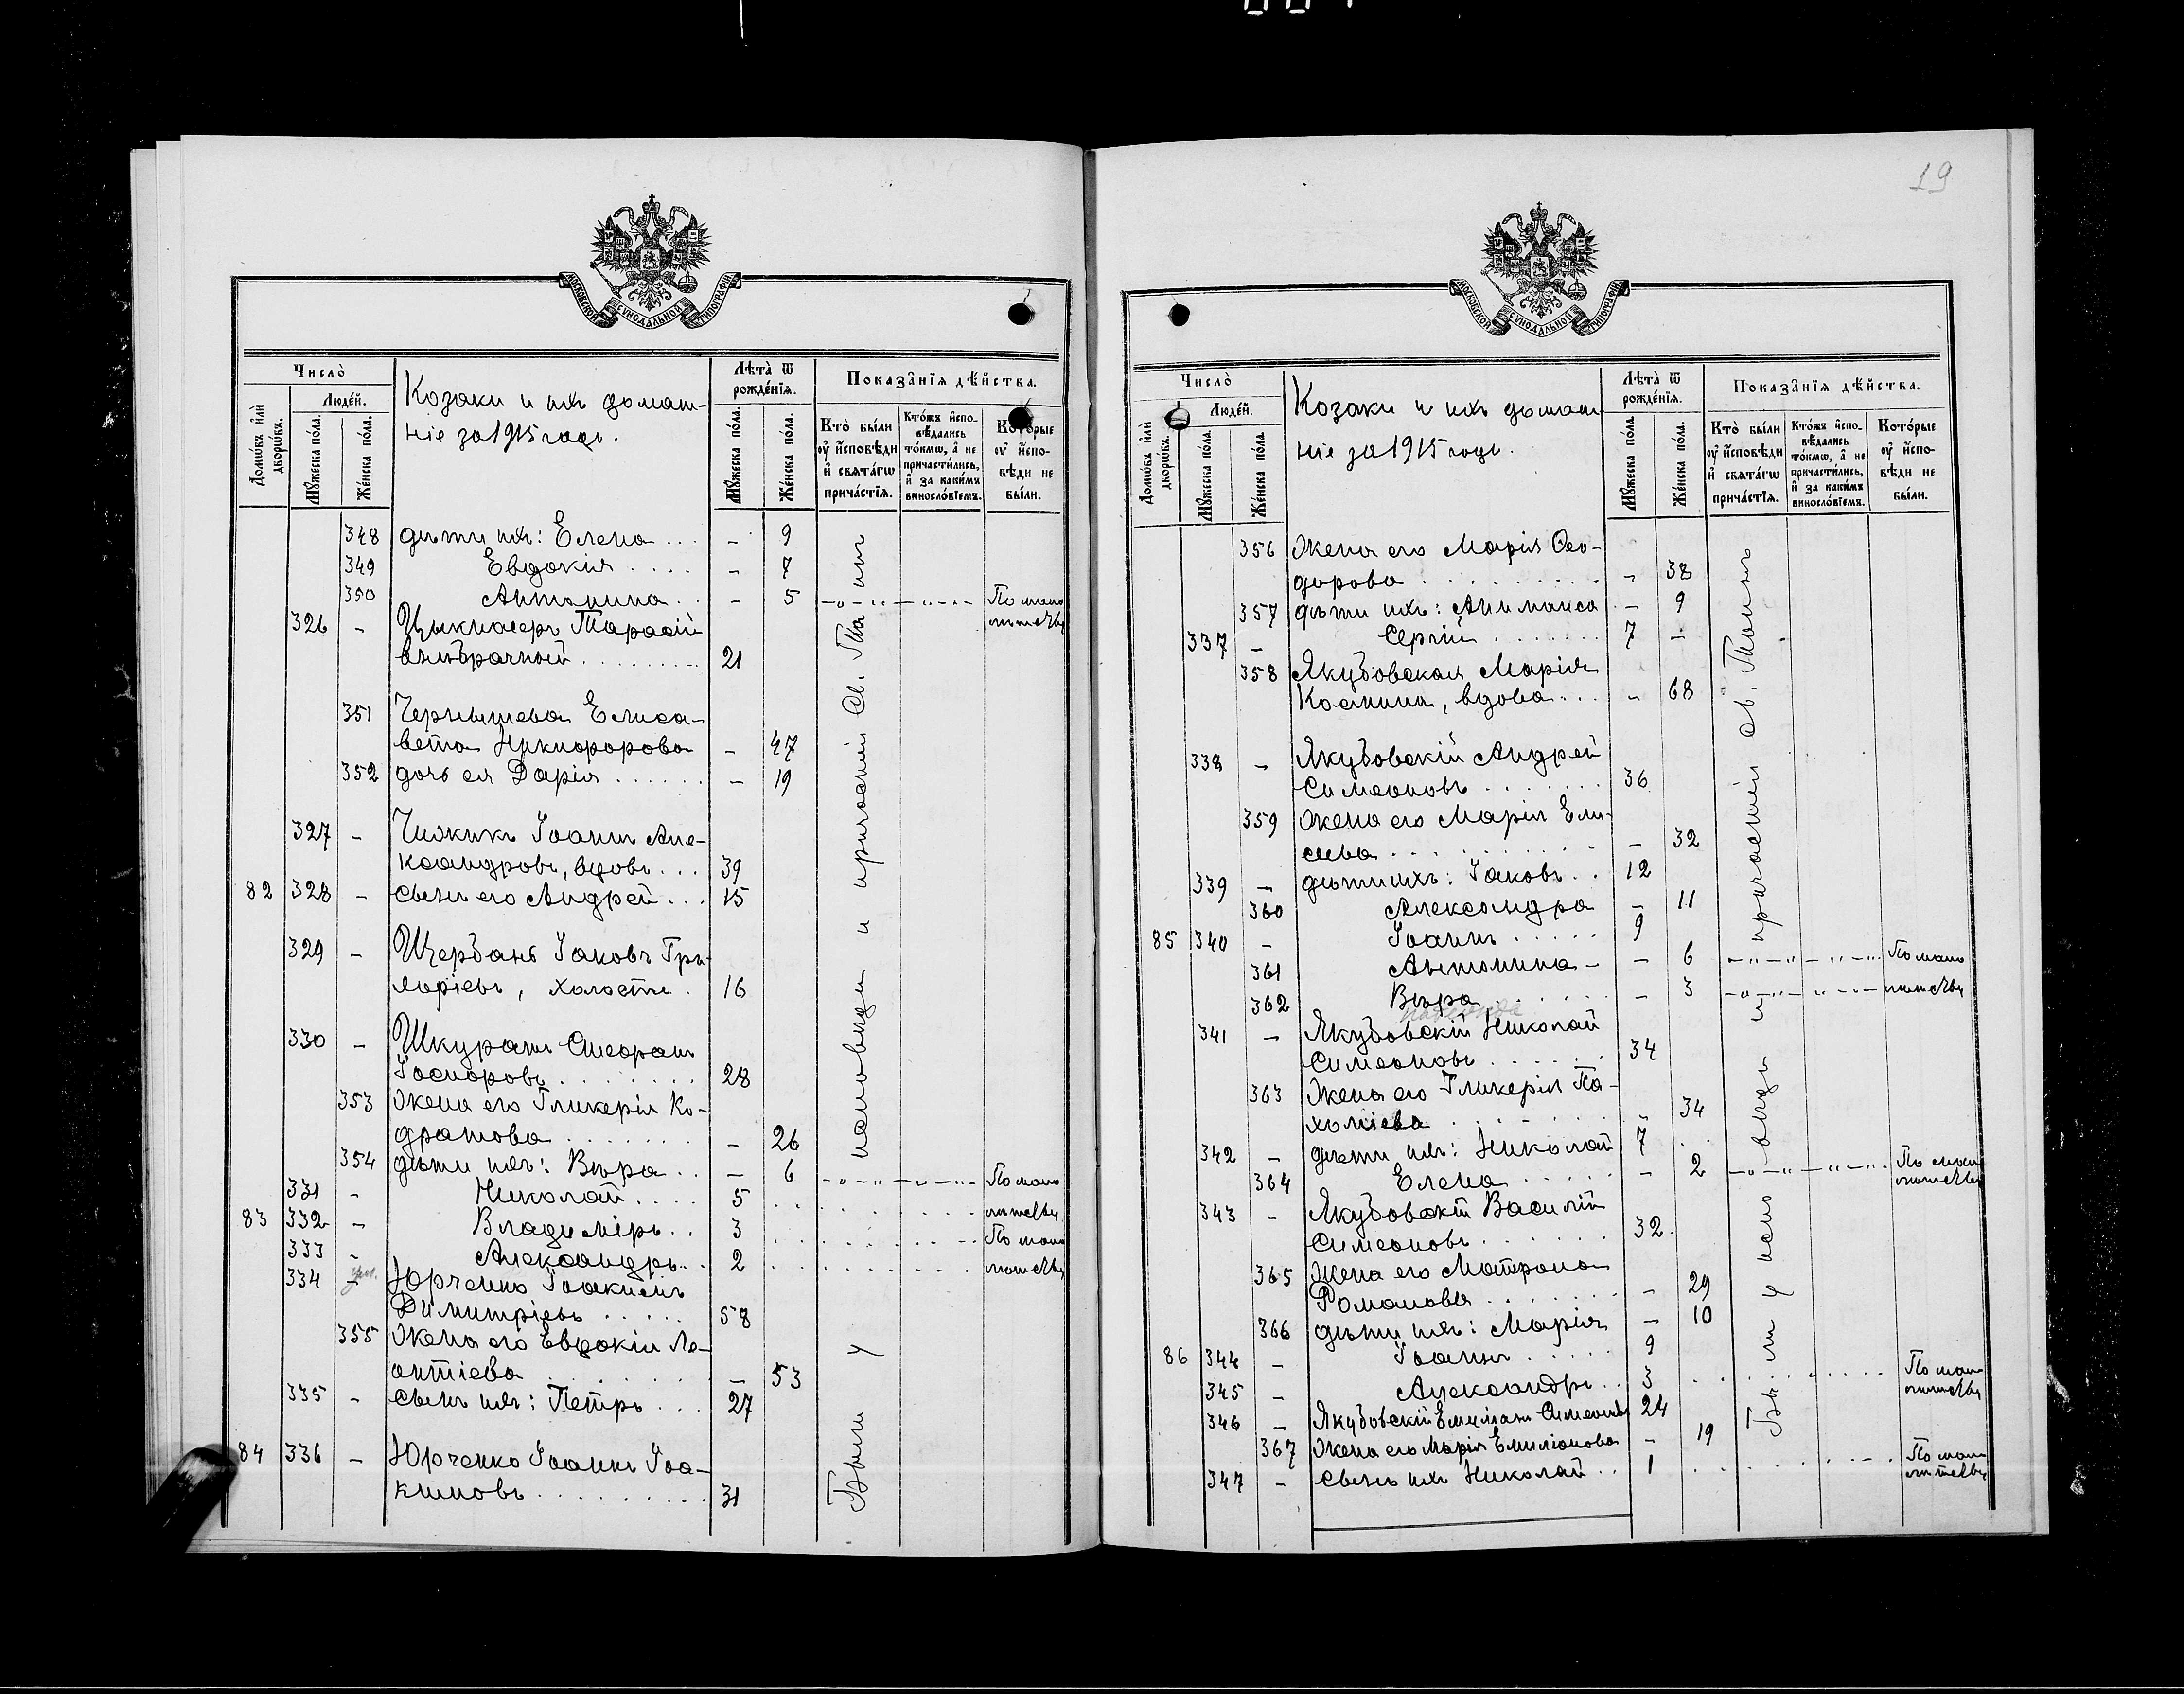 19
МОСКОВСКОЙ СУНОДАЛЬНОЙ ТИПОГРАФІИ
Число̀
Людéй.
Домѡ́въ и҆лѝ дворѡ́въ.
Мꙋ́жеска по́ла.
Же́нска по́ла.
Козаки и ихъ домаш-
ніе за 1915 годъ.
Лѣ́та ѿ рожде́нїя.
Мꙋ́жеска по́ла.
Же́нска по́ла.
Показа̑нїѧ дѣ́йства.
Кто̀ бы́ли оу҆ и҆сповѣ́ди и҆ свѧта́гѡ прича́стїѧ.
Кто́жъ и҆спо-вѣ́дались то́кмѡ, а҆ не причасти́лись, и҆ за каки́мъ винослóвїемъ.
Кото́рые оу҆ и҆спо-вѣ́ди не бы́ли.
348 дѣти ихъ: Елена ... - 9
349 Евдокія .... - 7
350 Антонина .. - 5 По мало
лѣтству
326 - Цыкласеръ Тарасій
внѣбрачный ......... 21
351 Чернышева Елиса-
вета Никифорова - 47
352 дочь ея Дарія ...... - 19
327 - Чижикъ Іоаннъ Але-
ксандровъ, вдовъ ... 39
82 328 - сынъ его Андрей ... 15
329 - Щербань Іаковъ Гри-
горіевъ, холостъ . 16
330 - Шкуратъ Стефанъ
Іосифовъ ........ 28
353 Жена его Гликерія Ко-
дратова ....... - 26
354 дѣти ихъ: Вѣра .. - 6 По мало
331 - Николай .... 5 лѣтству
83 332 - Владиміръ .. 3 По мало
333 - Александръ .. 2 лѣтству
334 - ум. Юрченко Іоакимъ
Димитріевъ ..... 58
355 Жена его Евдокія Ле-
онтіева ........ - 53
335 - сынъ ихъ: Петръ ... 27
84 336 - Юрченко Іоаннъ Іоа-
кимовъ .......... 31
Были у исповѣди и причастія Св. Таинъ
МОСКОВСКОЙ СУНОДАЛЬНОЙ ТИПОГРАФІИ
Число̀
Людéй.
Домѡ́въ и҆лѝ дворѡ́въ.
Мꙋ́жеска по́ла.
Же́нска по́ла.
Козаки и ихъ домаш-
ніе за 1915 годъ.
Лѣ́та ѿ рожде́нїя.
Мꙋ́жеска по́ла.
Же́нска по́ла.
Показа̑нїѧ дѣ́йства.
Кто̀ бы́ли оу҆ и҆сповѣ́ди и҆ свѧта́гѡ прича́стїѧ.
Кто́жъ и҆спо-вѣ́дались то́кмѡ, а҆ не причасти́лись, и҆ за каки́мъ винослóвїемъ.
Кото́рые оу҆ и҆спо-вѣ́ди не бы́ли.
356 Жена его Марія Ѳео-
дорова .......... - 38
357 дѣти ихъ: Анимаиса - 9
337 - Сергій ....... 7 -
358 Якубовская Марія
Космина, вдова ... - 68
338 - Якубовскій Андрей
Симеоновъ ....... 36
359 Жена его Марія Ели-
сеева .......... - 32
339 - дѣти ихъ: Іаковъ .. 12
360 Александра - 11
85 340 - Іоаннъ ..... 9
361 Антонина - - 6 По мало
362 Вѣра ...... - 3 лѣтству
341 - Якубовскій Николай
Симеоновъ ...... 34
363 Жена его Гликерія Па-
хоміева ........ - 34
342 - дѣти ихъ: Николай 7
364 Елена ..... - 2 По мало
лѣтству
343 - Якубовскій Василій
Симеоновъ ....... 32
365 Жена его Матрона
Романова ....... - 29
366 дѣти ихъ: Марія - 10
86 344 - Іоаннъ ..... 9
345 - Александръ .. 3 По мало
лѣтству
346 - Якубовскій Емиліанъ Симеоновъ 24
367 Жена его Марія Емиліанова - 19
347 - сынъ ихъ Николай .. 1 По мало
лѣтству
Были у исповѣди и причастія Св. Таинъ